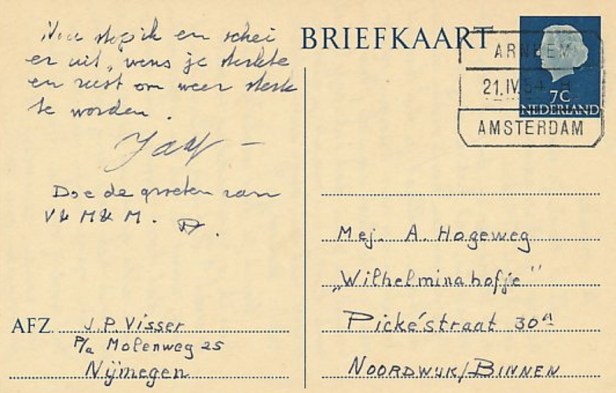 Nou stop ik en schei
er uit, wens je sterkte
en rust om weer sterk
te worden.
Jaap
Doe de groeten aan
V & M & M.
BRIEFKAART
ARNHEM
21.IV.54
AMSTERDAM
7C
NEDERLAND
Mej. A. Hogeweg
"Wilhelminahofje"
Pické'straat 30a
NOORDWIJK/BINNEN
AFZ. J.P. Visser
P/a Molenweg 25
Nijmegen